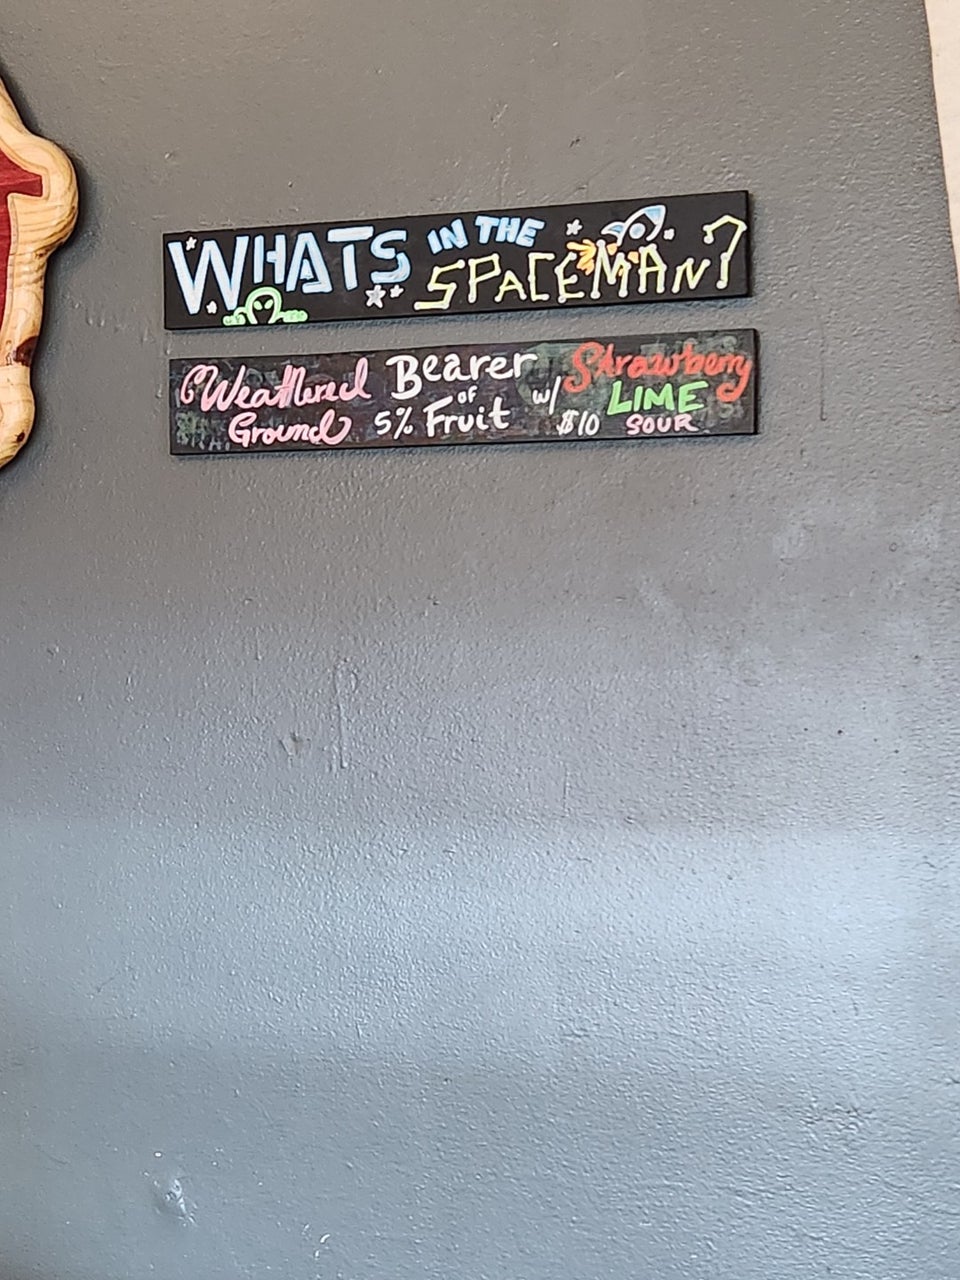 WHATS IN THE SPACEMAN?
Weathered Bearer w/ Strawberry
Ground 5% of Fruit $10 LIME
SOUR